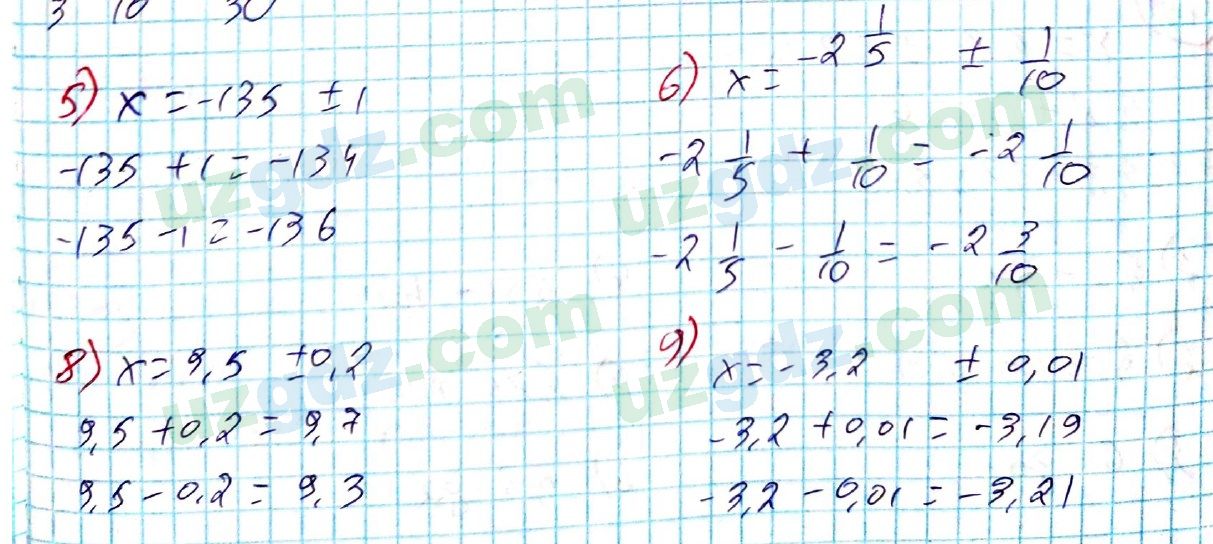 3 10 30
5) x = -135 ± 1
-135 + 1 = -134
-135 - 1 = -136
6) x = -2 1/5 ± 1/10
-2 1/5 + 1/10 = -2 1/10
-2 1/5 - 1/10 = -2 3/10
8) x = 9,5 ±0,2
9,5 + 0,2 = 9,7
9,5 - 0,2 = 9,3
9) x = -3,2 ± 0,01
-3,2 + 0,01 = -3,19
-3,2 - 0,01 = -3,21
uzgdz.com
uzgdz.com
uzgdz.com
uzgdz.com